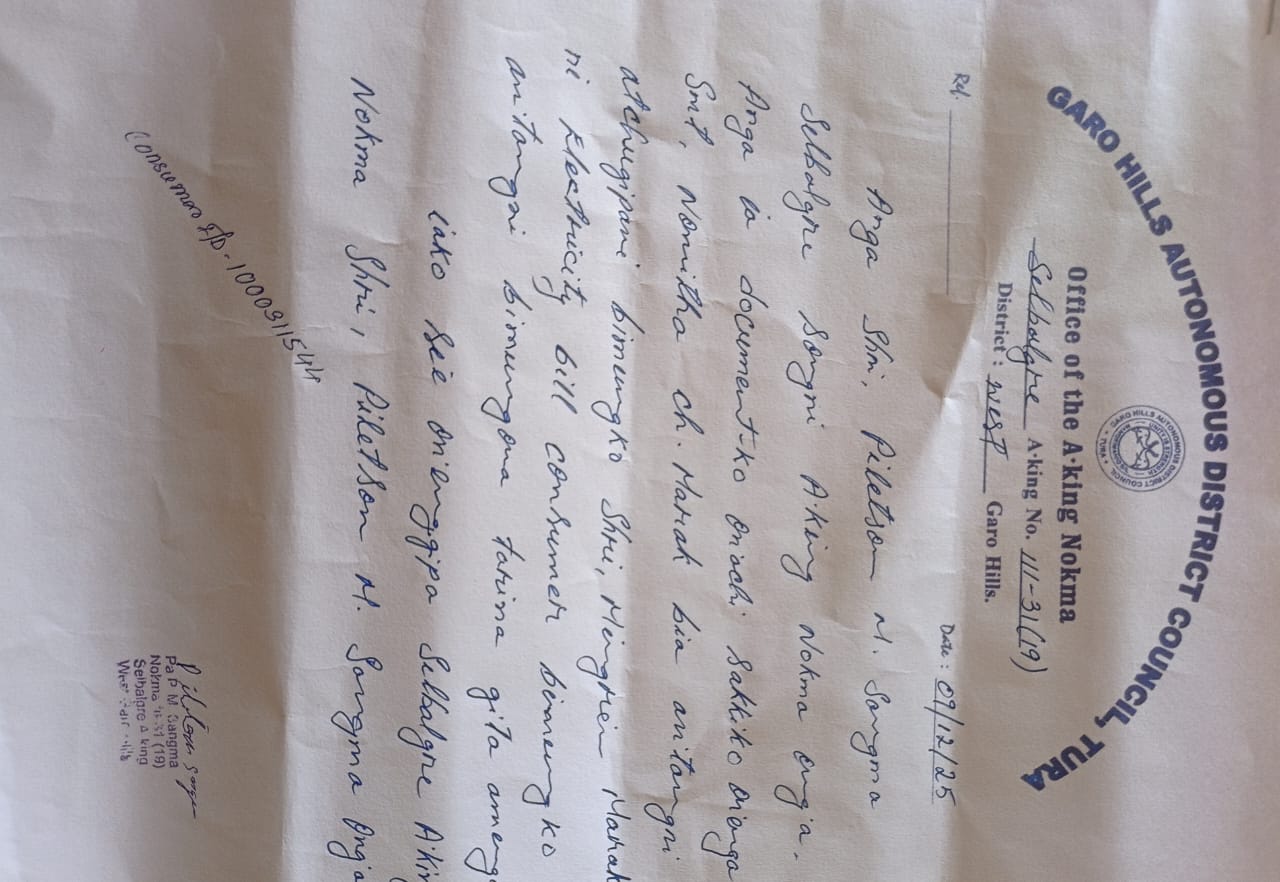 GARO HILLS AUTONOMOUS DISTRICT COUNCIL, TURA
GARO HILLS AUTONOMOUS DISTRICT COUNCIL
TURA
Office of the A·king Nokma
Selbalgre A·king No. III-31(19)
District: West Garo Hills.
Ref. Date: 09/12/25
Anga Shri, Piletson M. Sangma
Selbalgre Songni A·king Nokma onga.
Anga ia documentko on·achi Sakkiko on·enga
Smt, Nomitha ch. Marak bia an·tangni
atchugipani bimungko Shri, Mengrien Marak
ni Electricity bill consumer bimungko
an·tangni bimungona tarina gita ameng
iako see on·enggipa Selbalgre Akin
Nokma Shri, Piletson M. Sangma Ong·a
Consumer I/D - 1000311544
M. Sangma
Nokma (19)
Selbalgre A·king